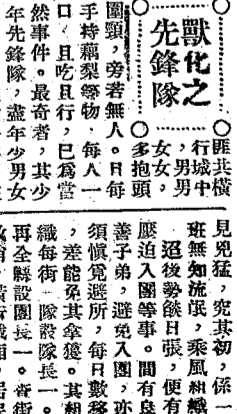 獸化之
先鋒隊
匪共橫
行城中
，男男
女女，
多抱頭
圍頸，旁若無人。日每
手持藕梨等物，每人一
口，且吃且行，已爲當
然事件。最奇者，其少
年先鋒隊，盡年少男女
見兇猛，究其初，係一
班無知流氓，乘風組織
迢後勢燄日張，便有
壓迫入團等事。間有良
善子弟，避免入團，亦
須慎覓避所，每日數移
，差能免其拿獲。其組
織每街一隊設隊長一。
再全縣設團長一。